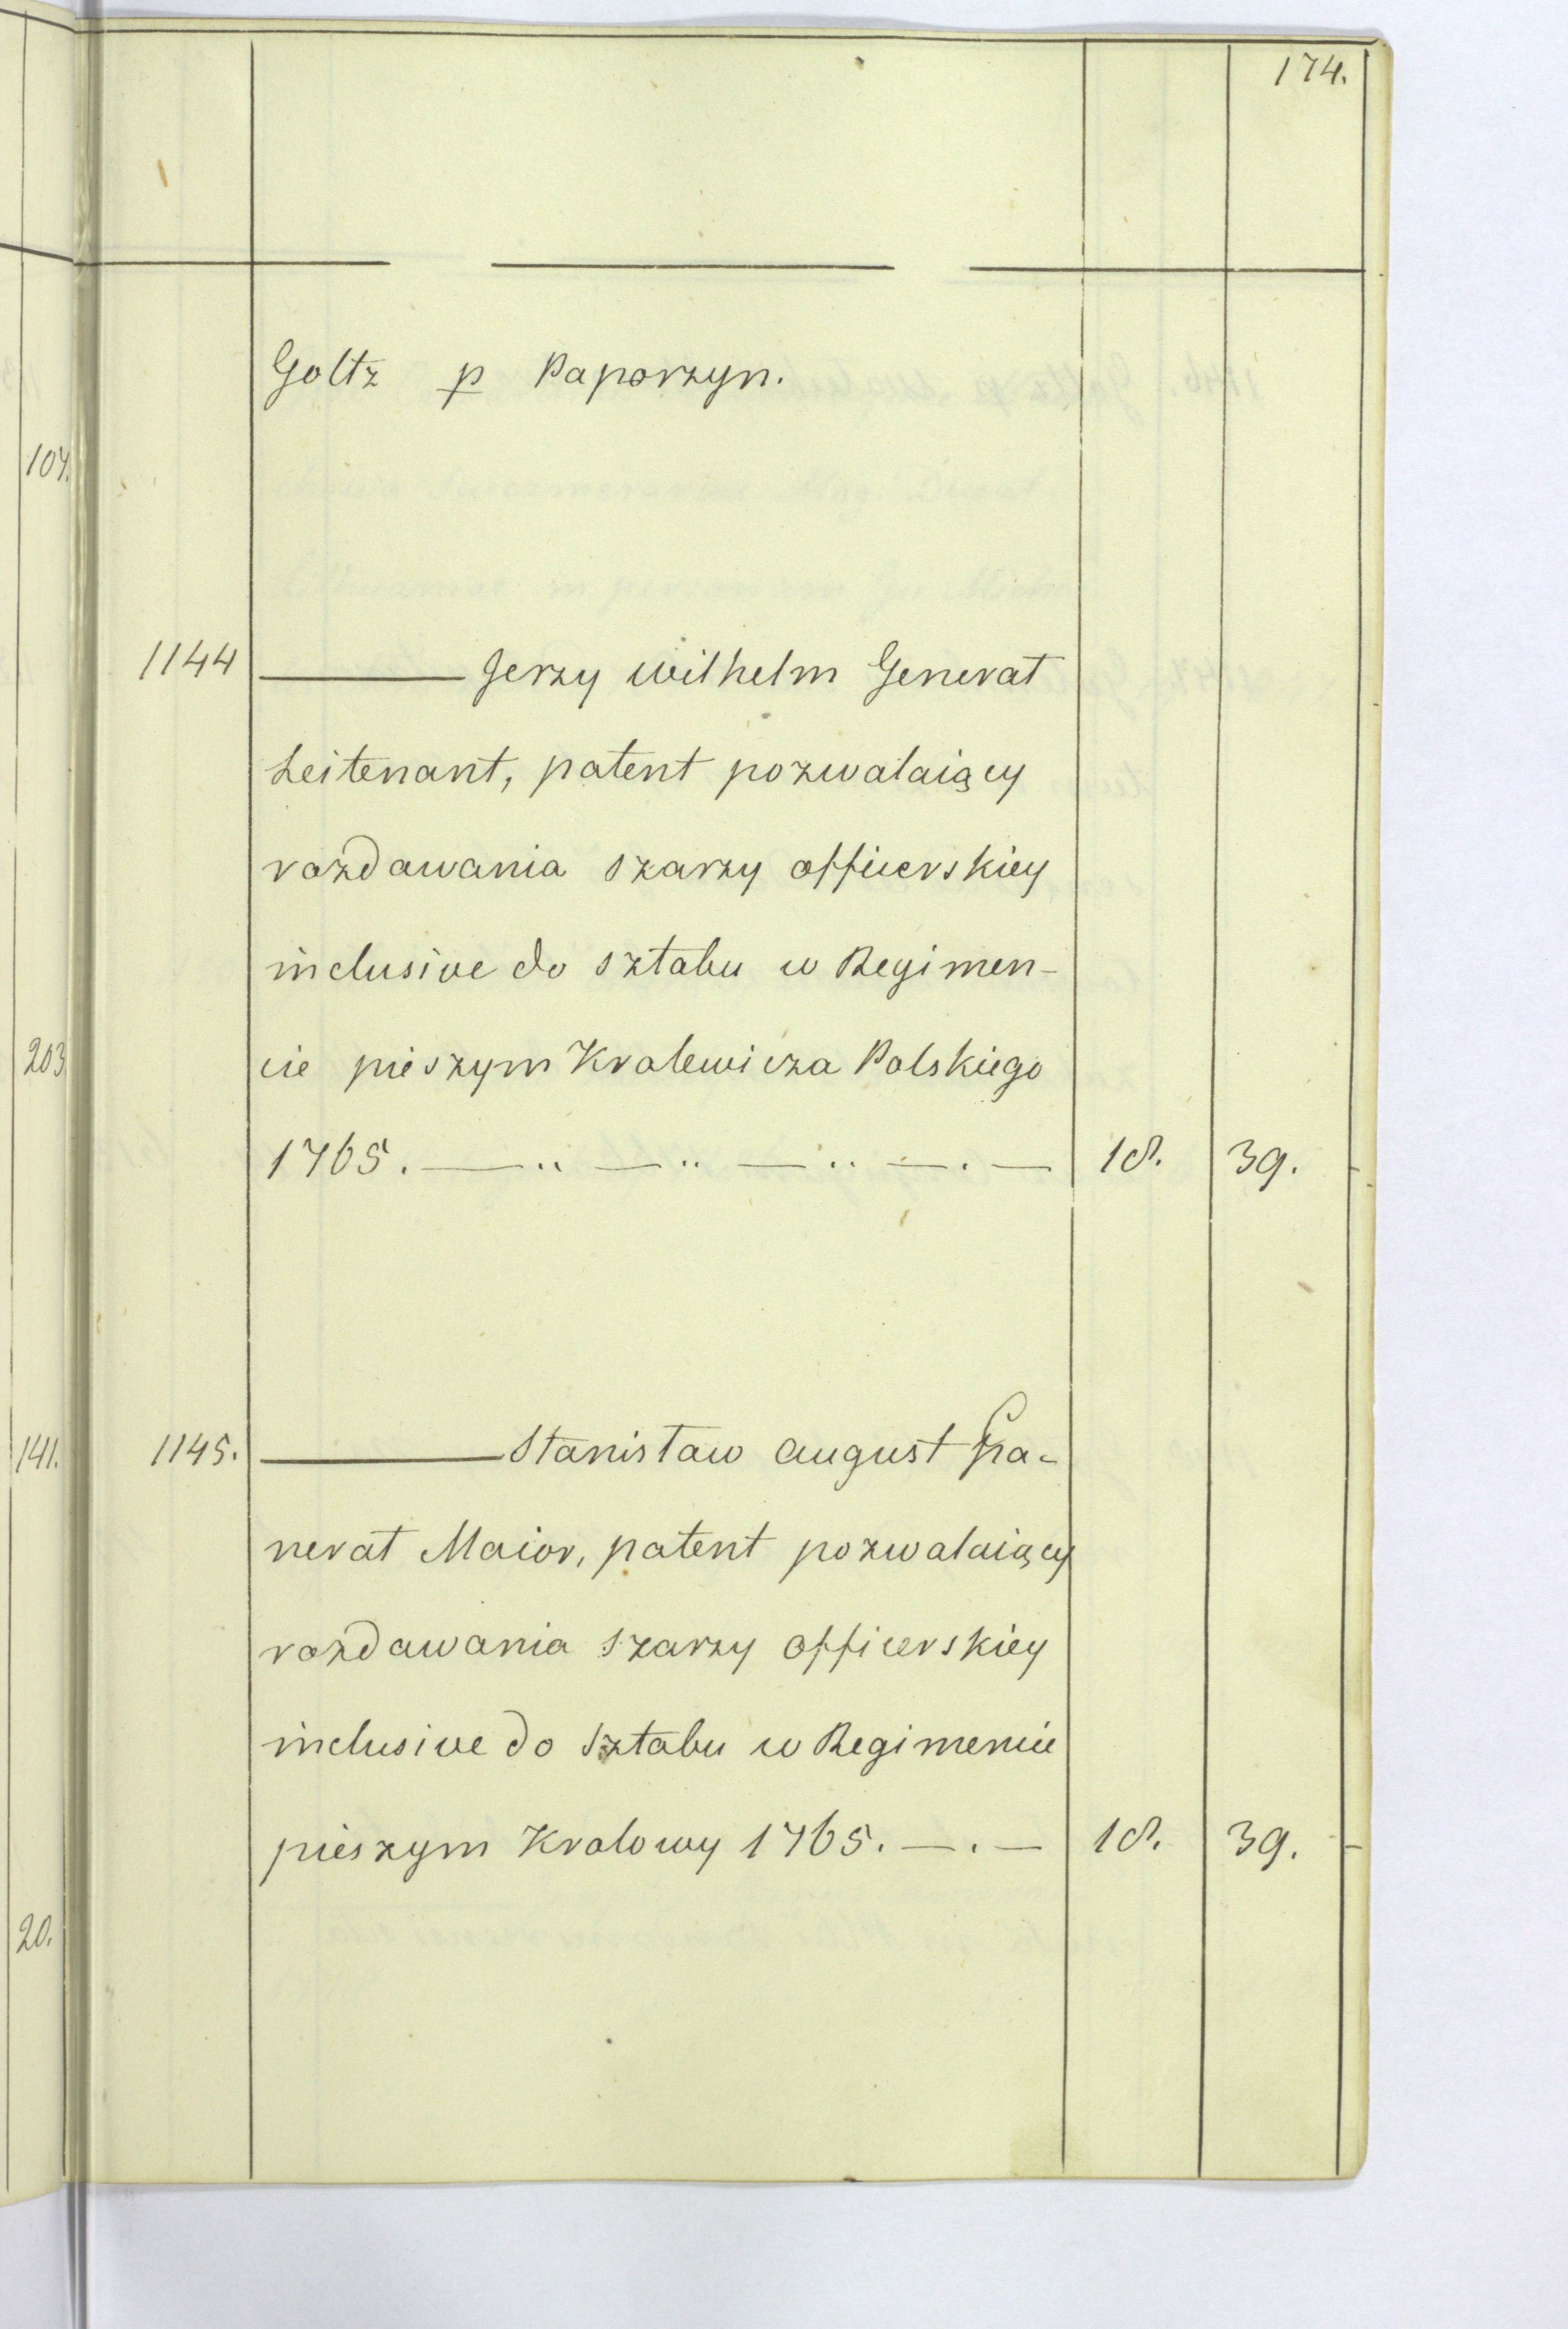 174.
Goltz p Paporzyn.
1144 ——— Jerzy Wilhelm Generał
Leitenant, patent pozwalaiący
rozdawania szarzy officerskiey
inclusive do sztabu w Regimen-
cie pieszym Kralewicza Polskiego
1765. —— „ — „ — „ — . — 18. 39.
1145. ——— Stanisław August
nerał Maior, patent pozwalaiący
rozdawania szarzy officerskiey
inclusive do sztabu w Regimencie
pieszym Kralowy 1765. — . — 18. 39.
107.
203
141.
20.